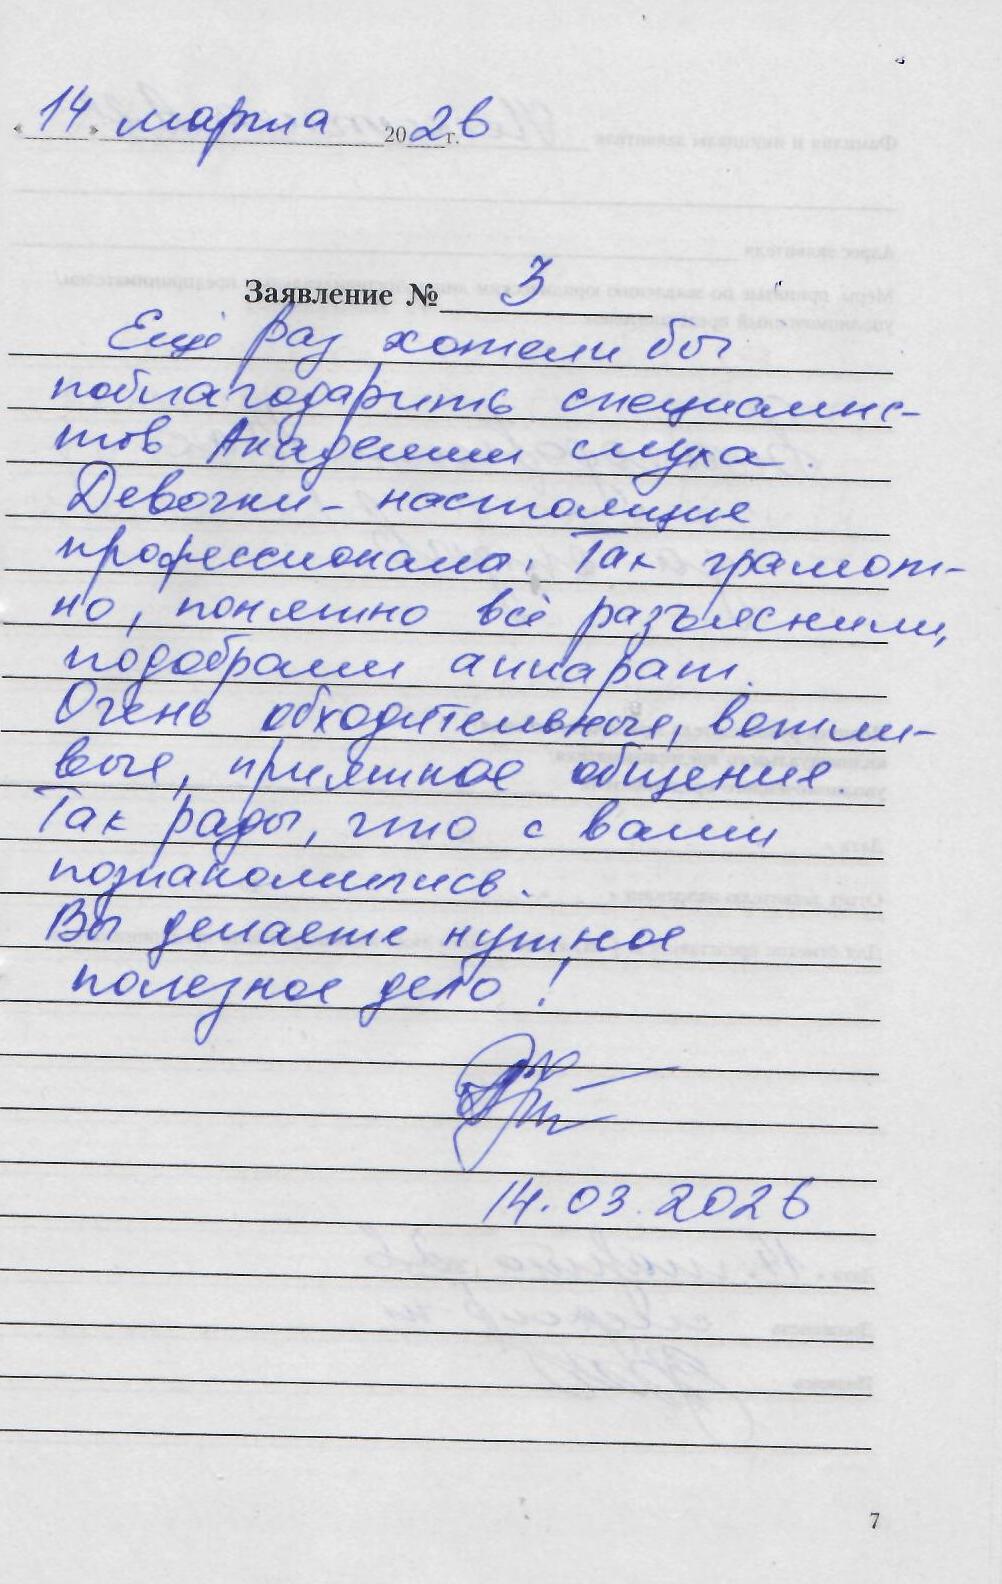 «14» марта 2026 г.
Заявление № 3
Ещё раз хотели бы
поблагодарить специалис-
тов Академии слуха.
Девочки - настоящие
профессионалы. Так грамот-
но, понятно всё разъяснили,
подобрали аппарат.
Очень обходительные, вежли-
вые, приятное общение.
Так рады, что с вами
познакомились.
Вы делаете нужное
полезное дело!
14.03.2026
7